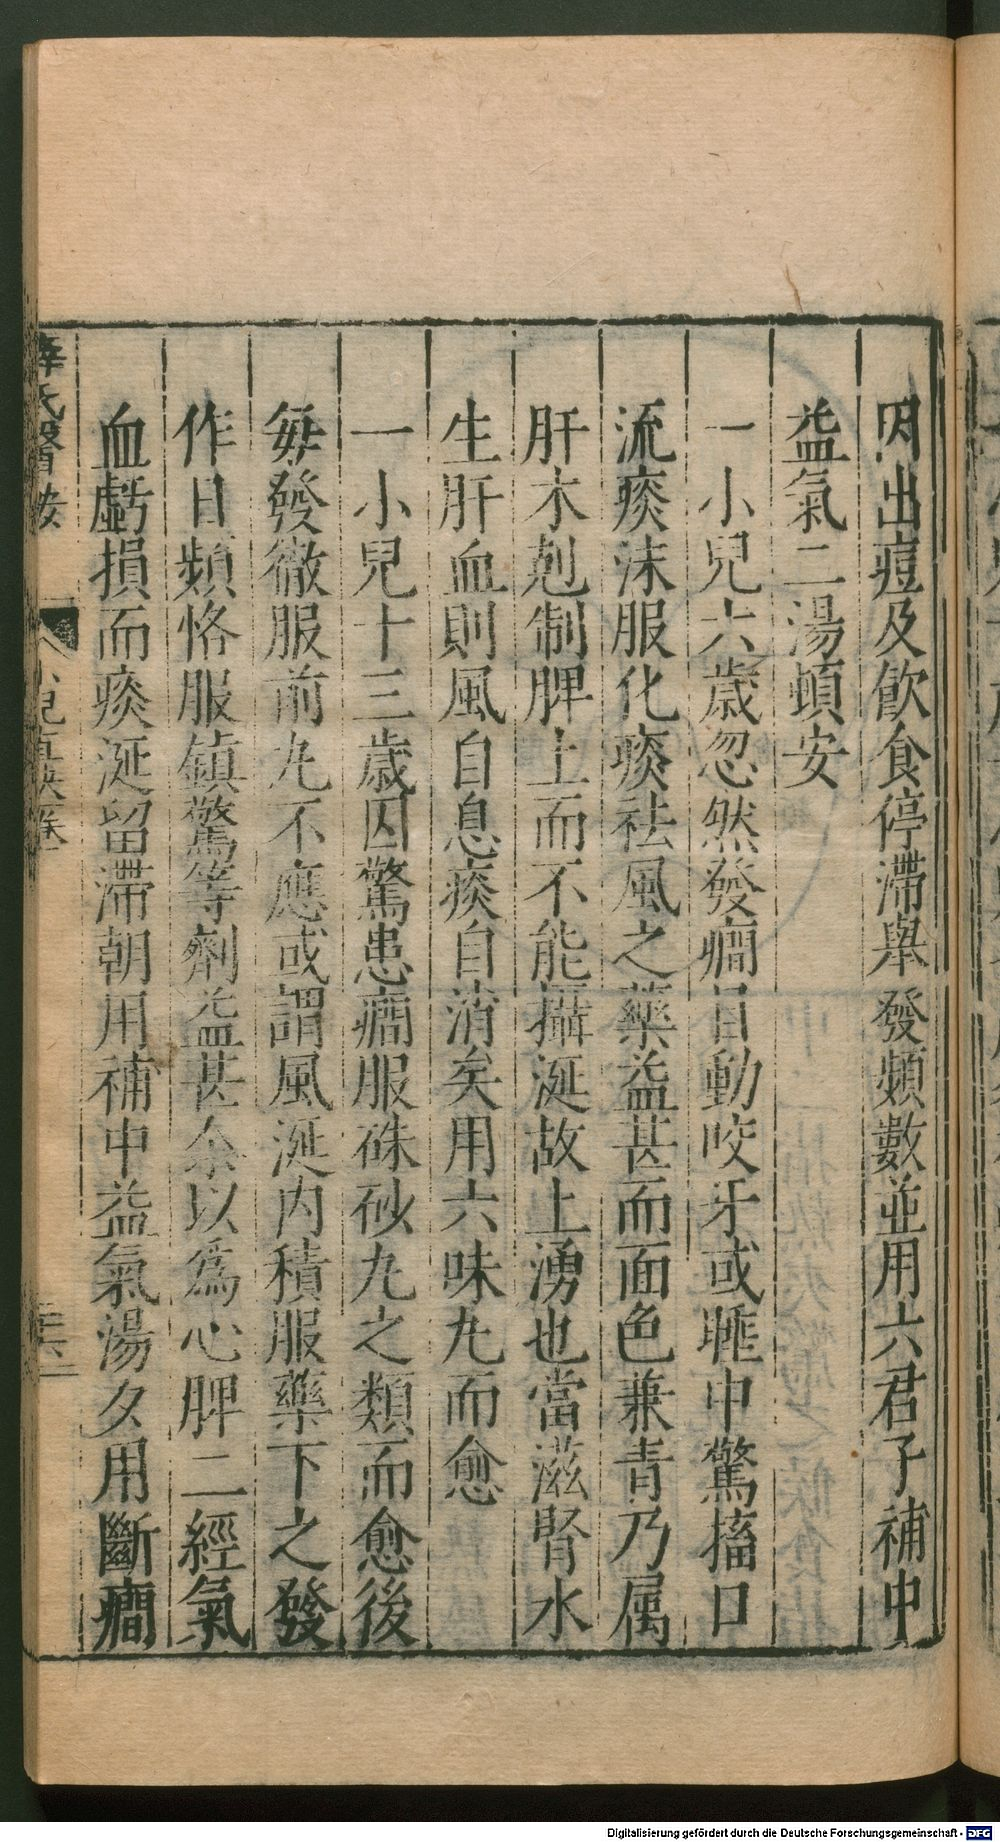 因出痘及飲食停滯舉發頻數並用六君子補中
益氣二湯頓安
一小兒六歲忽然發癇目動咬牙或睡中驚搐口
流痰沫服化痰祛風之藥益甚而面色兼青乃属
肝木剋制脾土而不能攝涎故上湧也當滋腎水
生肝血則風自息痰自消矣用六味丸而愈
一小兒十三歲因驚患癇服硃砂丸之類而愈後
每發徹服前丸不應或謂風涎内積服藥下之發
作日頻恪服鎮驚等劑益甚余以爲心脾二經氣
血虧損而痰涎留滯朝用補中益氣湯夕用斷癇
薛氏醫按
小兒直訣卷
Digitalisierung gefördert durch die Deutsche Forschungsgemeinschaft - DFG